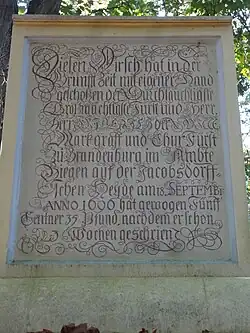 Diesen Hirsch hat in der
Brunfft Zeit mit eigener Hand
geschoßen der Durchlauchtigste
Großmächtigste Fürst und Herr,
Herr
Marggraff und Chur Fürst
Zu Brandenburg im Ambte
Biegen auf der Jacobsdorff-
schen Heyde am 18. SEPTEMB:
ANNO. 1696 hat gewogen Fünff
Centner 35 Pfund, nachdem er schon
Wochen geschrien